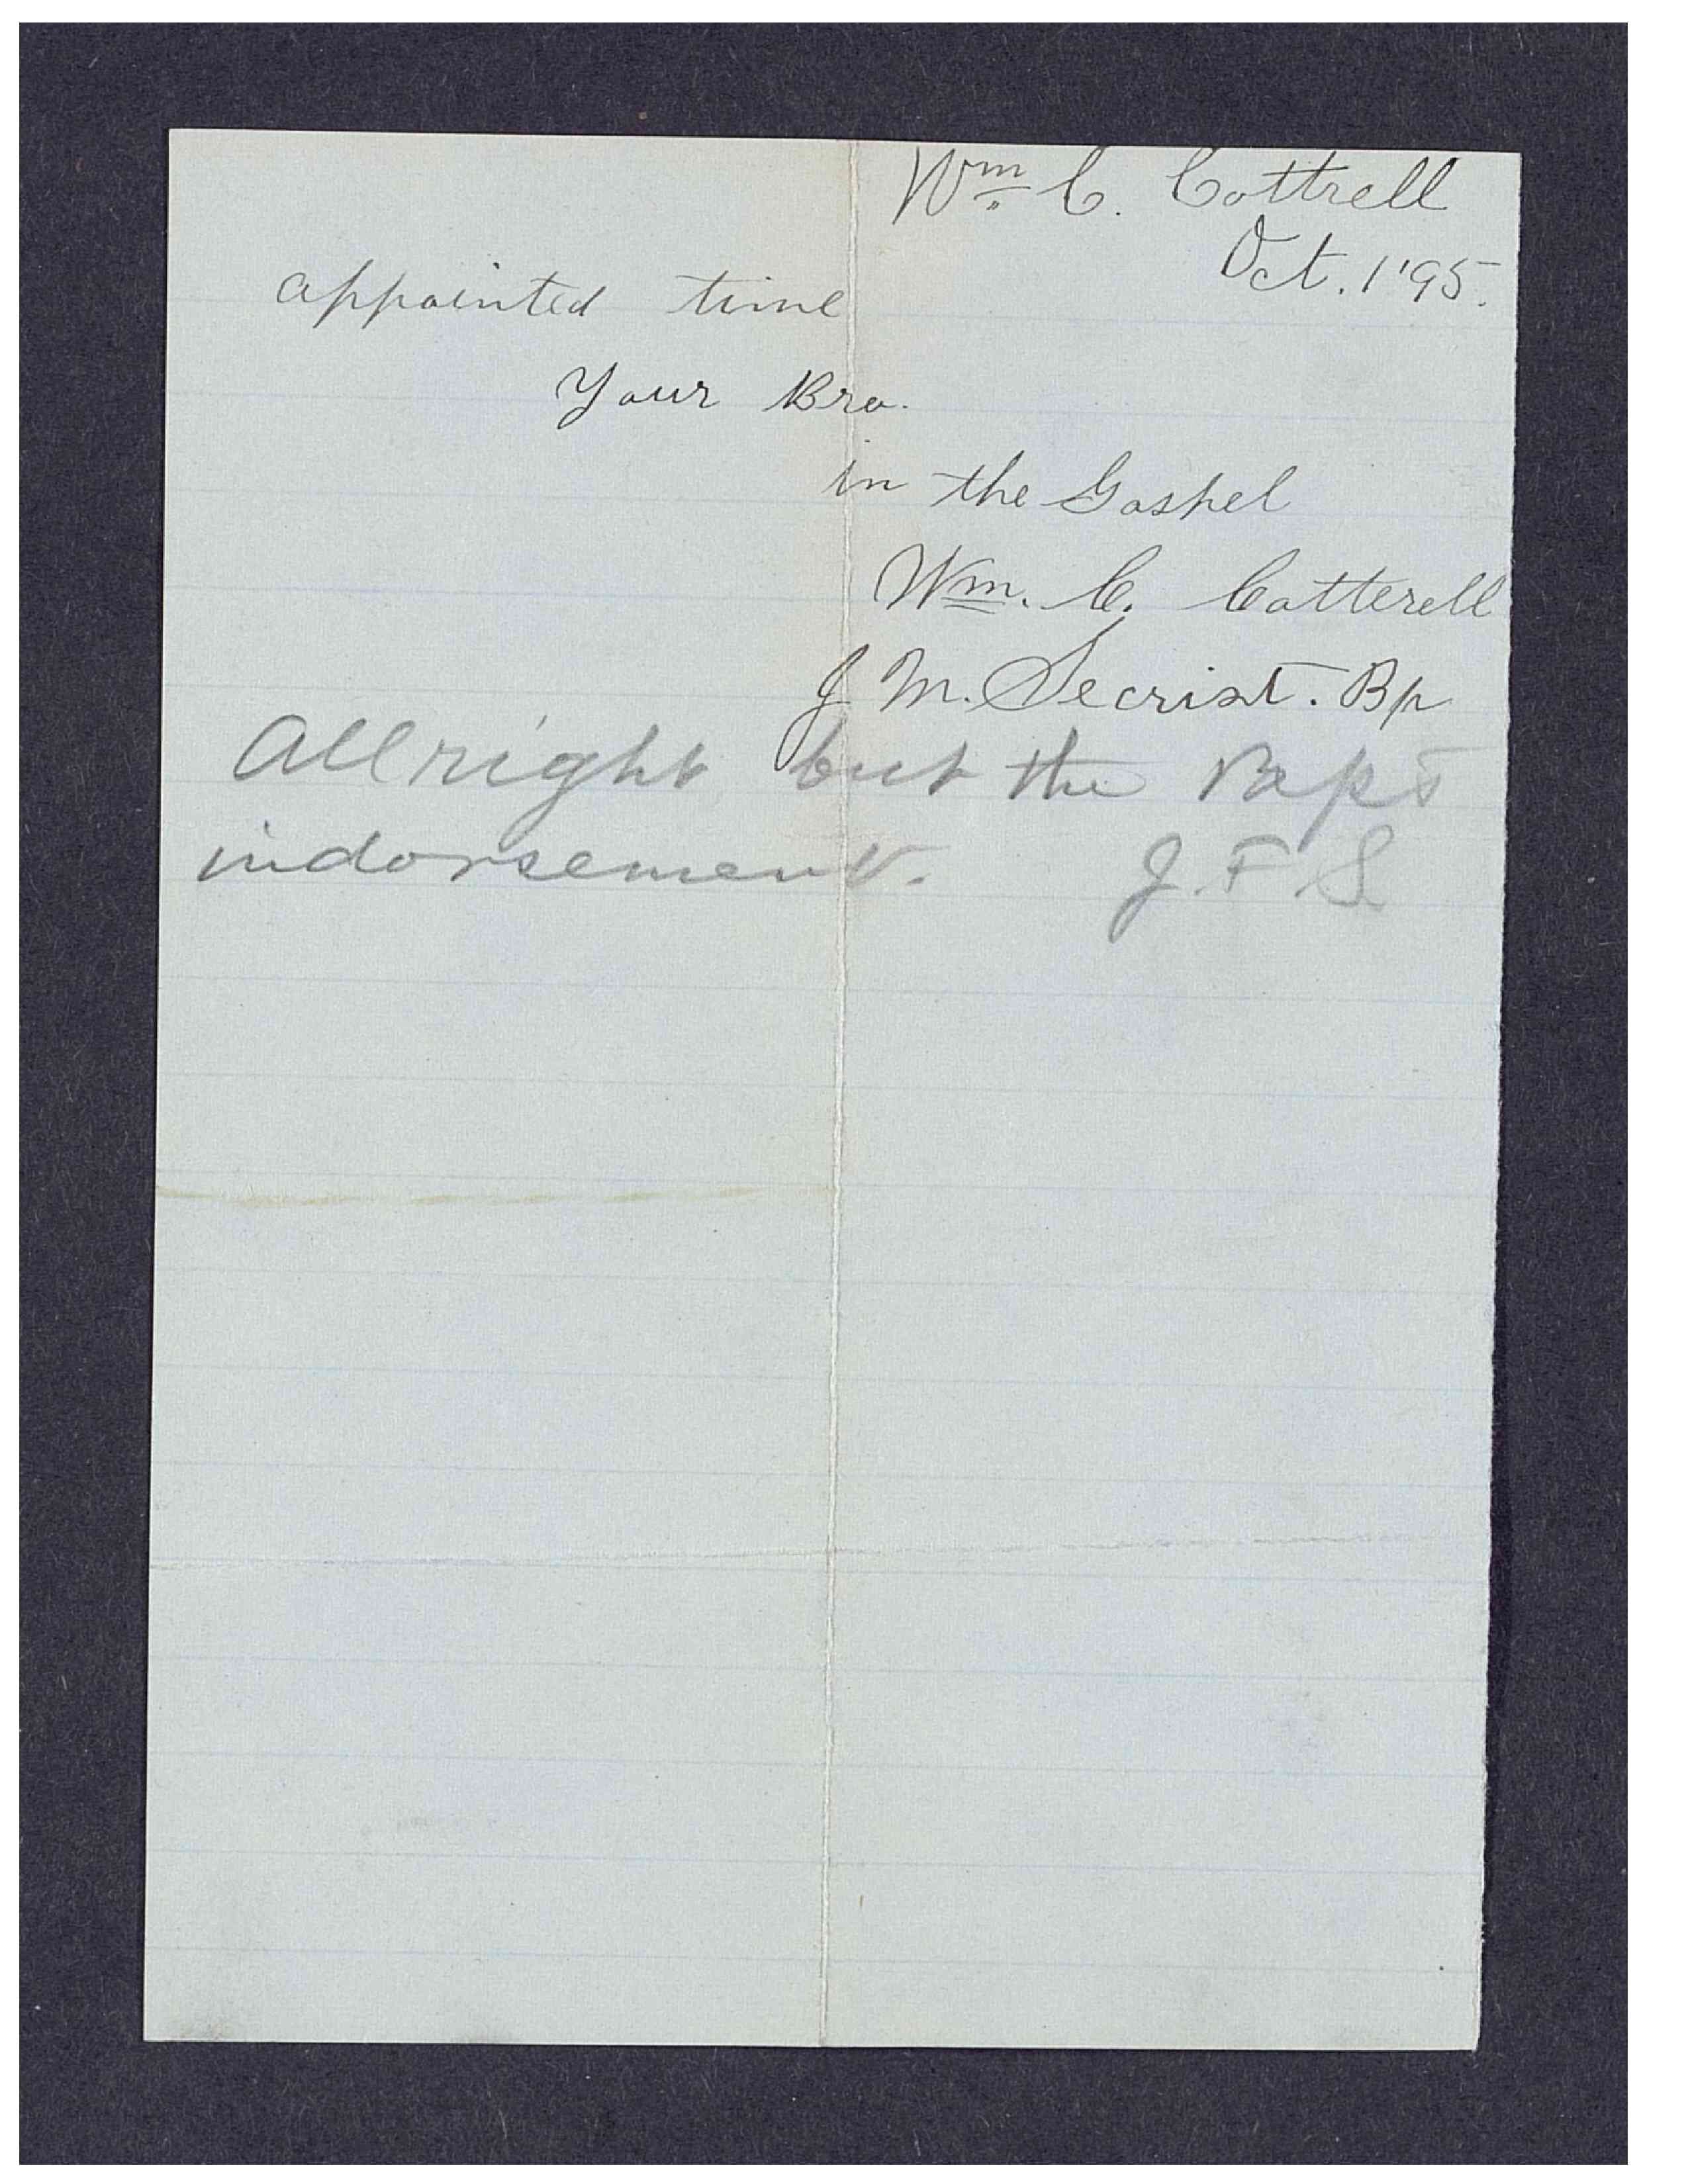 Wm. C. Cottrell
Oct. 1 '95.
appointed time
Your Bro.
in the Gospel
Wm. C. Cotterell
J M. Secrist. Bp
All right but the Bps
indorsement. J. F. S.